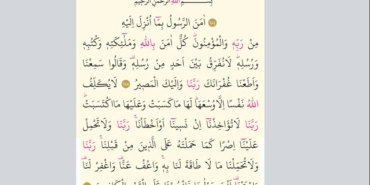 بِسْمِ اللهِ الرَّحْمٰنِ الرَّحِيمِ
اٰمَنَ الرَّسُولُ بِمَٓا اُنْزِلَ اِلَيْهِ
مِنْ رَبِّهِ وَالْمُؤْمِنُونَ كُلٌّ اٰمَنَ بِاللهِ وَمَلٰٓئِكَتِهِ وَكُتُبِهِ
وَرُسُلِهِ لَانُفَرِّقُ بَيْنَ اَحَدٍ مِنْ رُسُلِهِ وَقَالُوا سَمِعْنَا
وَاَطَعْنَا غُفْرَانَكَ رَبَّنَا وَاِلَيْكَ الْمَصِيرُ لَايُكَلِّفُ
اللهُ نَفْسًا اِلَّاوُسْعَهَا لَهَا مَاكَسَبَتْ وَعَلَيْهَا مَااكْتَسَبَتْ
رَبَّنَا لَاتُؤَاخِذْنَٓا اِنْ نَسِينَٓا اَوْاَخْطَأْنَا رَبَّنَا وَلَاتَحْمِلْ
عَلَيْنَٓا اِصْرًا كَمَا حَمَلْتَهُ عَلَى الَّذِينَ مِنْ قَبْلِنَا رَبَّنَا
وَلَاتُحَمِّلْنَا مَا لَا طَاقَةَ لَنَا بِهِ وَاعْفُ عَنَّا وَاغْفِرْ لَنَا